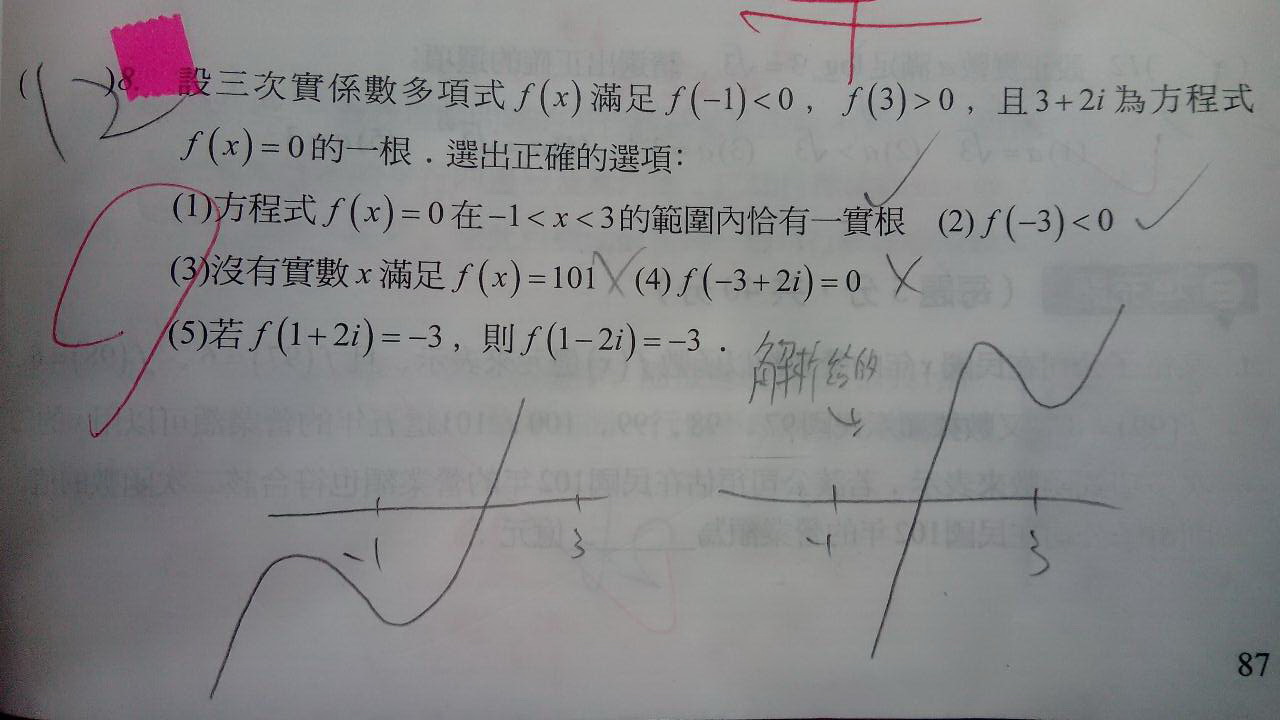 ( 12 )8. 設三次實係數多項式 f(x) 滿足 f(−1)<0，f(3)>0，且 3+2i 為方程式
f(x)=0的一根．選出正確的選項：
(1)方程式 f(x)=0在−1<x<3的範圍內恰有一實根 (2) f(−3)<0
(3)沒有實數 x 滿足 f(x)=101 (4) f(−3+2i)=0
(5)若 f(1+2i)=−3，則 f(1−2i)=−3．
解析給的
-1 3
-1 3
87